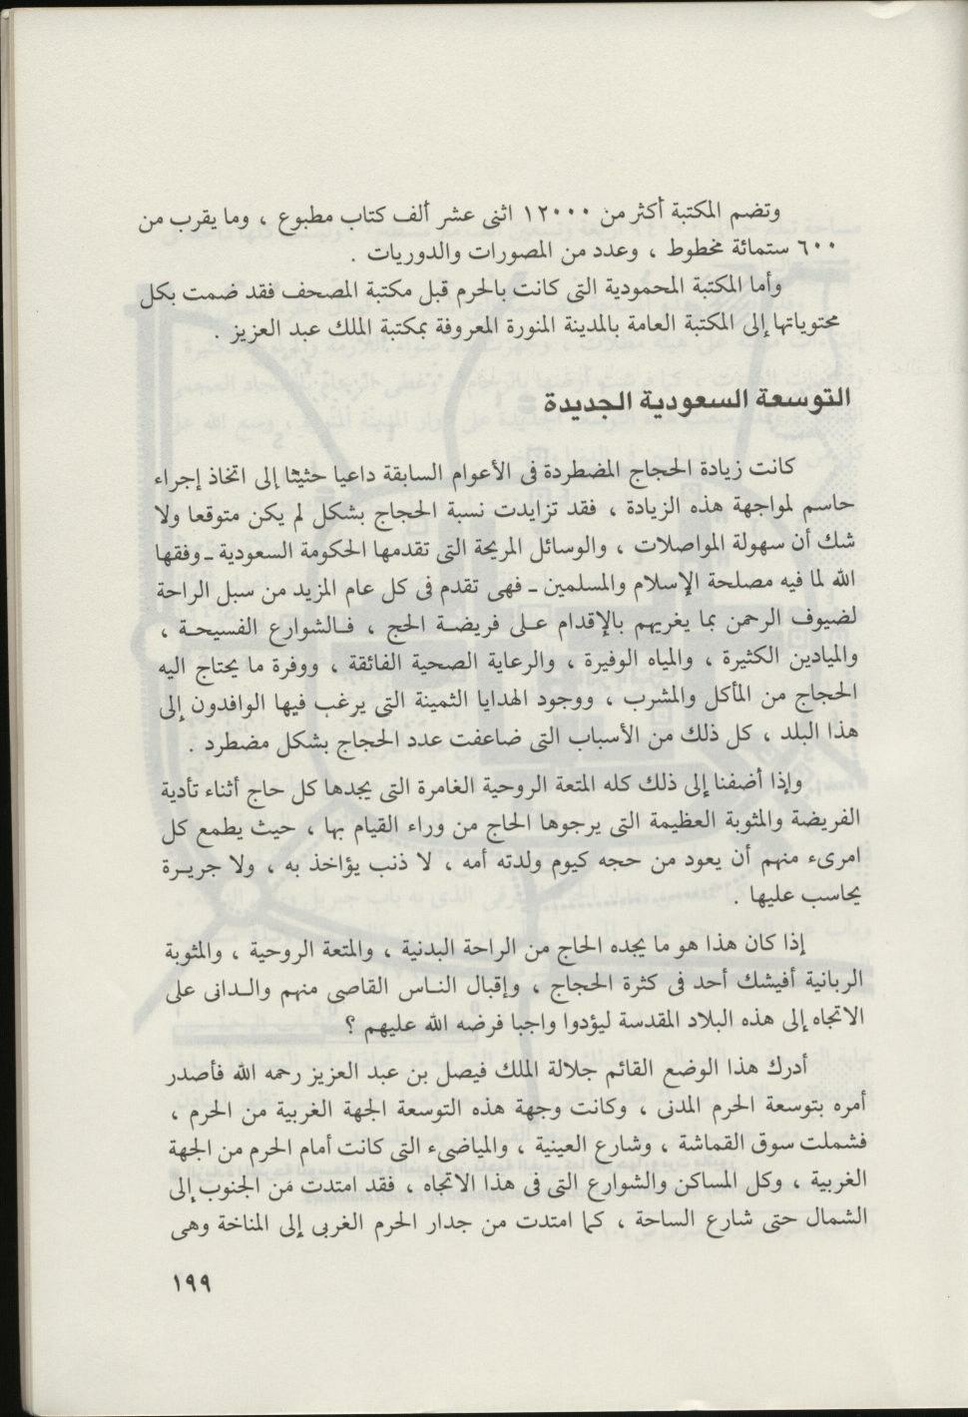 وتضم المكتبة أكثر من ١٢٠٠٠ اثنى عشر ألف كتاب مطبوع ، وما يقرب من
٦٠٠ ستمائة مخطوط ، وعدد من المصورات والدوريات .
وأما المكتبة المحمودية التى كانت بالحرم قبل مكتبة المصحف فقد ضمت بكل
محتوياتها إلى المكتبة العامة بالمدينة المنورة المعروفة بمكتبة الملك عبد العزيز .
التوسعة السعودية الجديدة
كانت زيادة الحجاج المضطردة فى الأعوام السابقة داعيا حثيثا إلى اتخاذ إجراء
حاسم لمواجهة هذه الزيادة ، فقد تزايدت نسبة الحجاج بشكل لم يكن متوقعا ولا
شك أن سهولة المواصلات ، والوسائل المريحة التى تقدمها الحكومة السعودية ـ وفقها
الله لما فيه مصلحة الإسلام والمسلمين ـ فهى تقدم فى كل عام المزيد من سبل الراحة
لضيوف الرحمن بما يغريهم بالإقدام على فريضة الحج ، فالشوارع الفسيحة ،
والميادين الكثيرة ، والمياه الوفيرة ، والرعاية الصحية الفائقة ، ووفرة ما يحتاج اليه
الحجاج من المأكل والمشرب ، ووجود الهدايا الثمينة التى يرغب فيها الوافدون إلى
هذا البلد ، كل ذلك من الأسباب التى ضاعفت عدد الحجاج بشكل مضطرد .
وإذا أضفنا إلى ذلك كله المتعة الروحية الغامرة التى يجدها كل حاج أثناء تأدية
الفريضة والمثوبة العظيمة التى يرجوها الحاج من وراء القيام بها ، حيث يطمع كل
امرىء منهم أن يعود من حجه كيوم ولدته أمه ، لا ذنب يؤاخذ به ، ولا جريرة
يحاسب عليها .
إذا كان هذا هو ما يجده الحاج من الراحة البدنية ، والمتعة الروحية ، والمثوبة
الربانية أفيشك أحد فى كثرة الحجاج ، وإقبال الناس القاصى منهم والدانى على
الاتجاه إلى هذه البلاد المقدسة ليؤدوا واجبا فرضه الله عليهم ؟
أدرك هذا الوضع القائم جلالة الملك فيصل بن عبد العزيز رحمه الله فأصدر
أمره بتوسعة الحرم المدنى ، وكانت وجهة هذه التوسعة الجهة الغربية من الحرم ،
فشملت سوق القماشة ، وشارع العينية ، والمياضىء التى كانت أمام الحرم من الجهة
الغربية ، وكل المساكن والشوارع التى فى هذا الاتجاه ، فقد امتدت من الجنوب إلى
الشمال حتى شارع الساحة ، كما امتدت من جدار الحرم الغربى إلى المناخة وهى
١٩٩